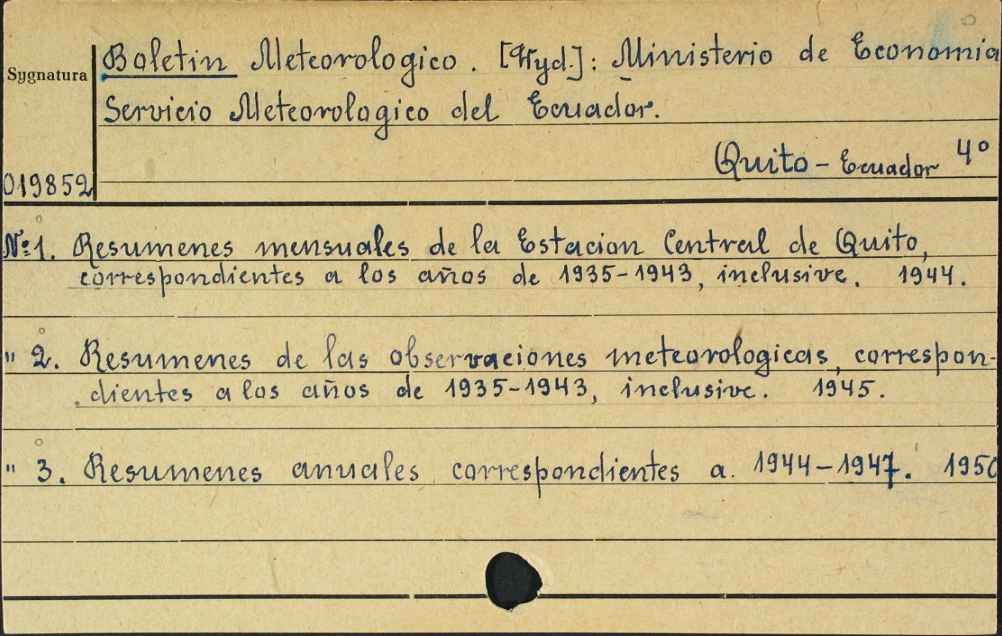 Boletin Meteorologico. [Wyd.]: Ministerio de Economia
Sygnatura
Servicio Meteorologico del Ecuador.
Quito - Ecuador 4°
019852
Nº 1. Resumenes mensuales de la Estacion Central de Quito,
correspondientes a los años de 1935-1943, inclusive. 1944.
" 2. Resumenes de las observaciones meteorologicas, correspon-
dientes a los años de 1935-1943, inclusive. 1945.
" 3. Resumenes anuales correspondientes a. 1944-1947. 1950